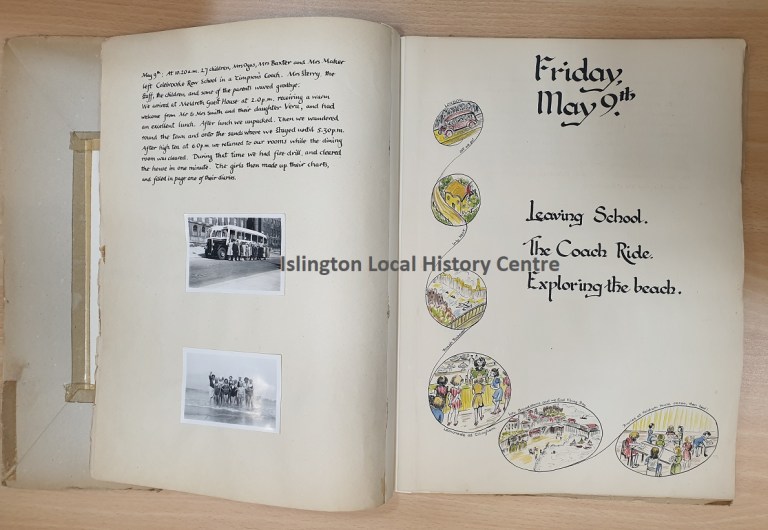 May 9th: At 10.20 a.m. 27 children, Mrs Dyas, Mrs Baxter and Mrs Maher
left Colebrooke Row School in a Timpson's Coach. Mrs Sterry, the
staff, the children, and some of the parents waved goodbye.
We arrived at Meldreth Guest House at 2.0 p.m. receiving a warm
welcome from Mr & Mrs Smith and their daughter Vera, and had
an excellent lunch. After lunch we unpacked. Then we wandered
round the town and onto the sands where we stayed until 5.30 p.m.
After high tea at 6.0 p.m. we returned to our rooms while the dining
room was cleared. During that time we had fire drill, and cleared
the house in one minute. The girls then made up their charts,
and filled in page one of their diaries.
Islington Local History Centre
Friday,
May 9.th
Leaving School.
The Coach Ride.
Exploring the beach.